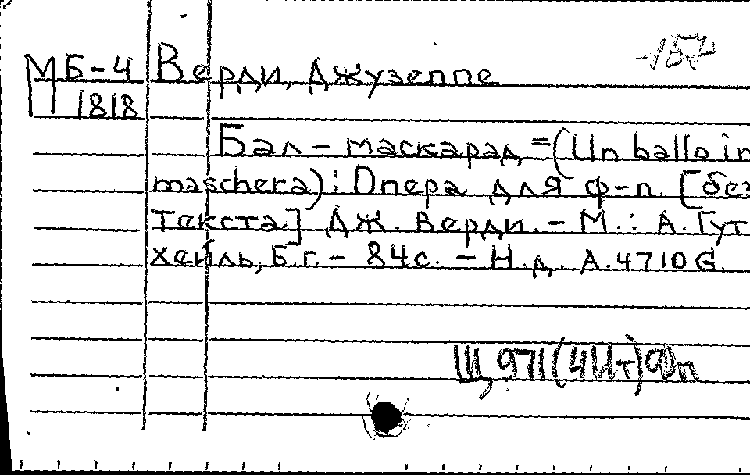 МБ-4 Верди, Джузеппе
П 1818
Бал-маскарад =(Un ballo in
maschera): Опера для ф-п. [без
текста] Дж. Верди. - М.: А.Гут
хейль, Б.г. - 84с. - Н.д. А.4710G.
Щ971(4Ит)Фп